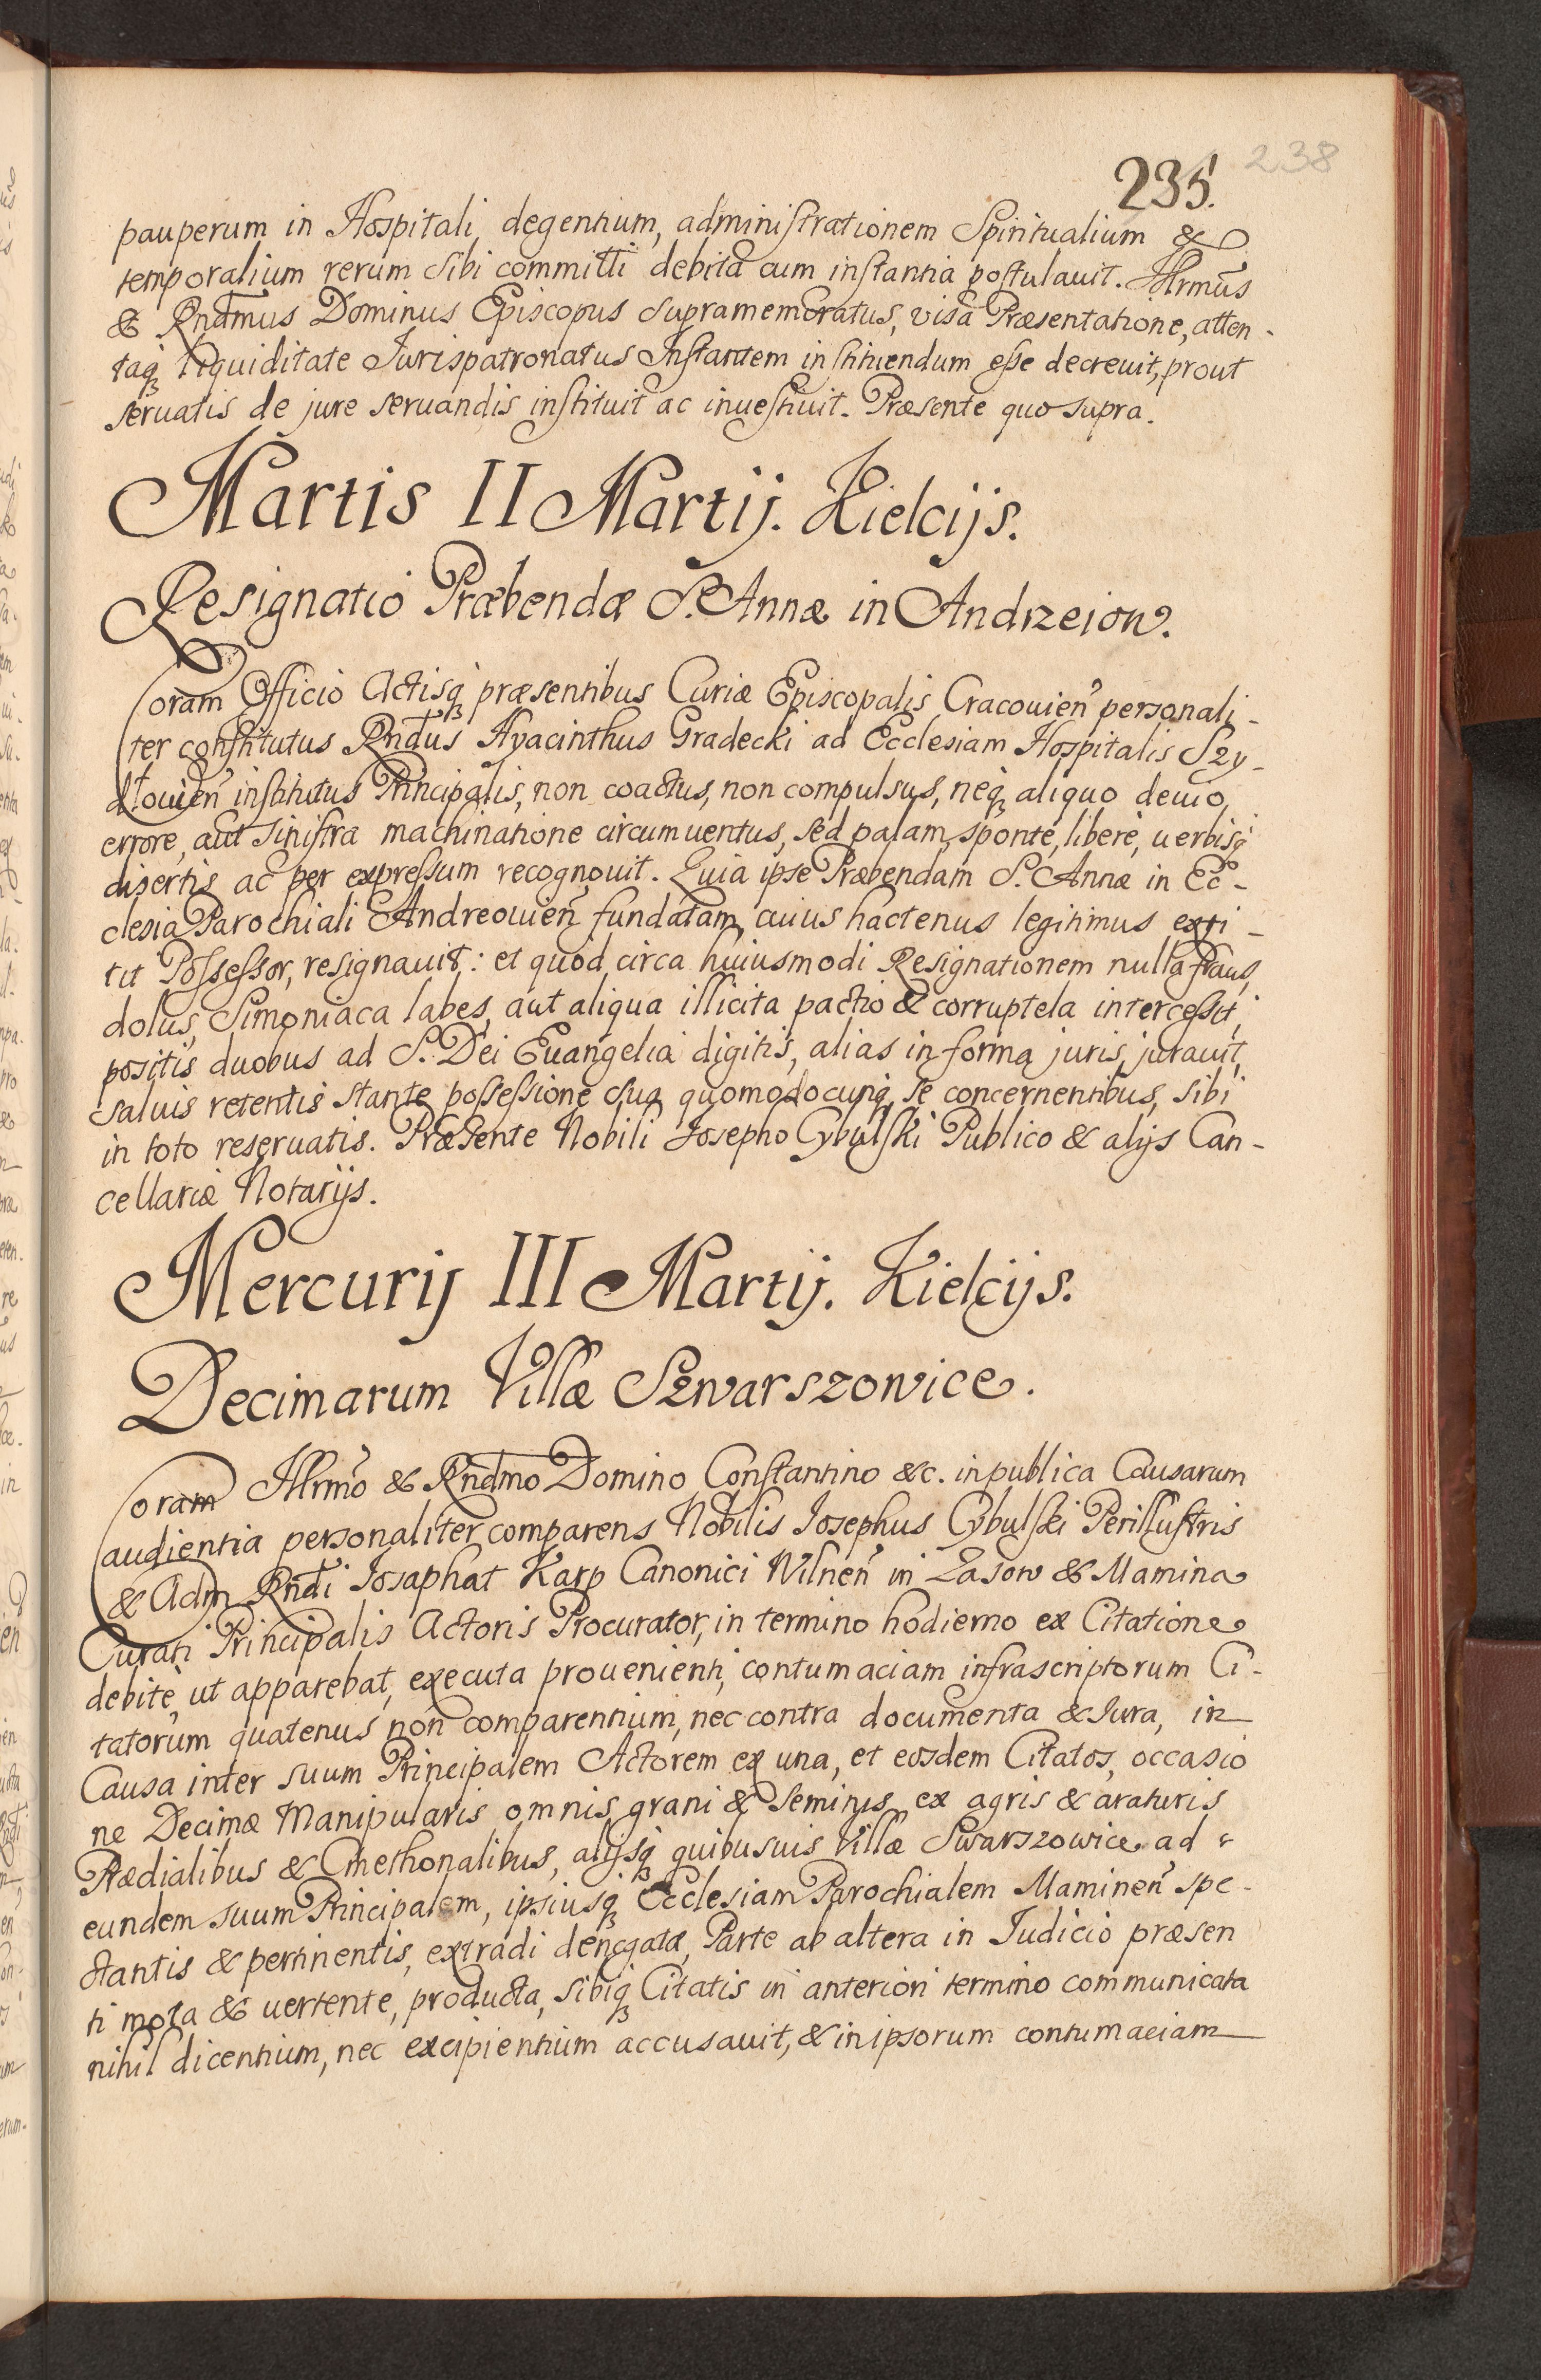 235. 238
pauperum in Hospitali degentium, administrationem Spiritualium &
temporalium rerum sibi committi debita cum instantia postulauit. Illrmus
& Rndmus Dominus Episcopus supramemoratus, visa Præsentatione, atten-
taq liquiditate Jurispatronatus Instantem instituendum esse decreuit, prout
seruatis de jure seruandis instituit ac inuestiuit. Præsente quo supra.
Martis II Martij. Kielcijs.
Resignatio Præbendæ S. Annæ in Andrzeiow.
Coram Officio Actisq præsentibus Curiæ Episcopalis Cracouien personali-
ter constitutus Rndus Hyacinthus Gradecki ad Ecclesiam Hospitalis Szy-
dłouien institutus Principalis, non coactus, non compulsus, neq aliquo deuio,
errore, aut sinistra machinatione circumuentus, sed palam, sponte, libere, uerbisq
disertis ac per expressum recognouit. Quia ipse Præbendam S. Annæ in Ec-
clesia Parochiali Andreouien fundatam, cuius hactenus legitimus exti-
tit Possessor, resignauit: et quod circa huiusmodi Resignationem nulla fraus,
dolus, Simoniaca labes, aut aliqua illicita pactio & corruptela intercessit,
positis duobus ad S. Dei Euangelia digitis, alias in forma juris, jurauit,
saluis retentis stante possessione sua quomodocunq se concernentibus, sibi
in toto reseruatis. Præsente Nobili Josepho Cybulski Publico & alijs Can-
cellariæ Notarijs.
Mercurij III Martij. Kielcijs.
Decimarum Villæ Szwarszowice.
Coram Illrmo & Rndmo Domino Constantino &c. in publica Causarum
audientia personaliter comparens Nobilis Josephus Cybulski Perillustris
& Adm Rndi Josaphat Karp Canonici Wilnen in Łasow & Mamina
Curati Principalis Actoris Procurator, in termino hodierno ex Citatione
debite, ut apparebat, executa prouenienti, contumaciam infrascriptorum Ci-
tatorum quatenus non comparentium, nec contra documenta & Jura, in
Causa inter suum Principalem Actorem ex una, et eosdem Citatos, occasio
ne Decimæ Manipularis omnis grani & seminis ex agris & araturis
Prædialibus & Cmethonalibus, alijsq quibusuis Villæ Swarszowice ad
eundem suum Principalem, ipsiusq Ecclesiam Parochialem Maminen spe-
ctantis & pertinentis, extradi denegatæ, Parte ab altera in Judicio præsen
ti mota & uertente, producta, sibiq Citatis in anteriori termino communicata
nihil dicentium, nec excipientium accusauit, & in ipsorum contumaciam